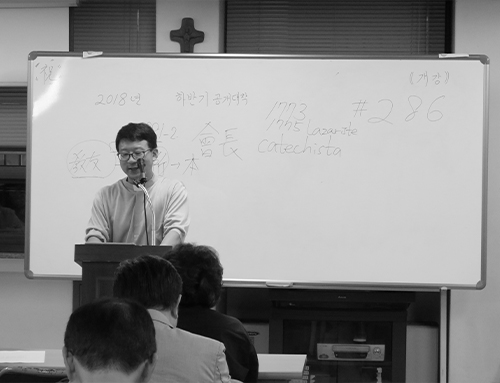 (개강)
2018년 하반기 공개대학
1773
1775 lazarite
# 286
會長 catechista
本